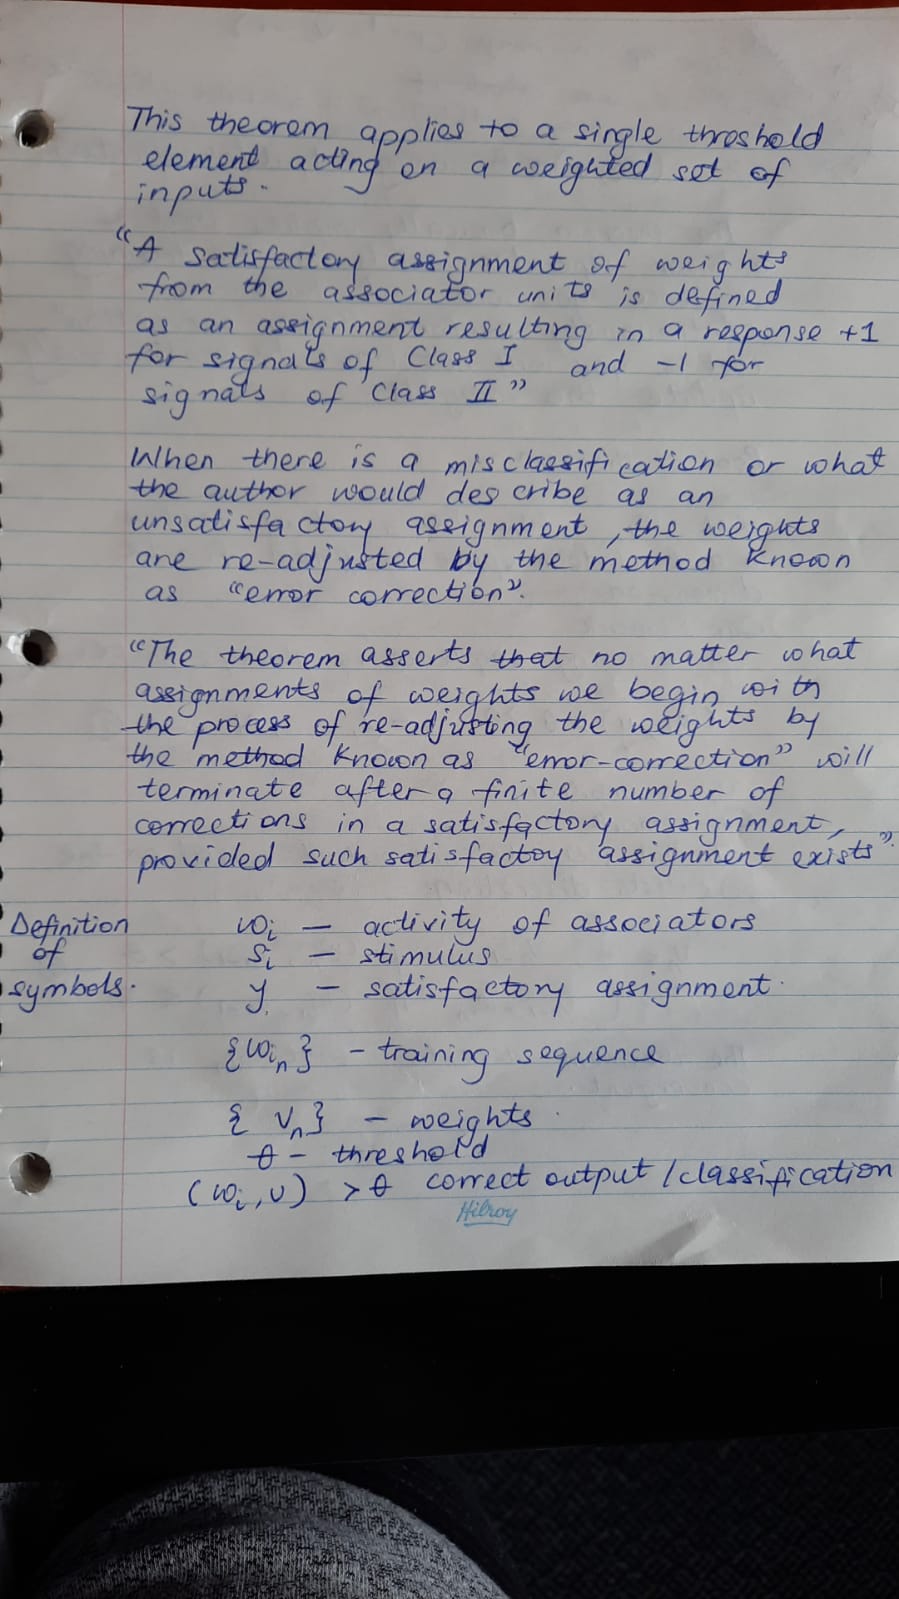 This theorem applies to a single threshold
element acting on a weighted set of
inputs.
"A satisfactory assignment of weights
from the associator units is defined
as an assignment resulting in a response +1
for signals of Class I and -1 for
signals of Class II"
When there is a misclassification or what
the author would describe as an
unsatisfactory assignment, the weights
are re-adjusted by the method known
as "error correction".
"The theorem asserts that no matter what
assignments of weights we begin with
the process of re-adjusting the weights by
the method known as "error-correction" will
terminate after a finite number of
corrections in a satisfactory assignment,
provided such satisfactoy assignment exists".
Definition of symbols.
wᵢ — activity of associators
sᵢ — stimulus
y — satisfactory assignment.
{wᵢₙ} — training sequence
{ vₙ} — weights.
θ — threshold
(wᵢ, v) > θ correct output / classification
Hilroy